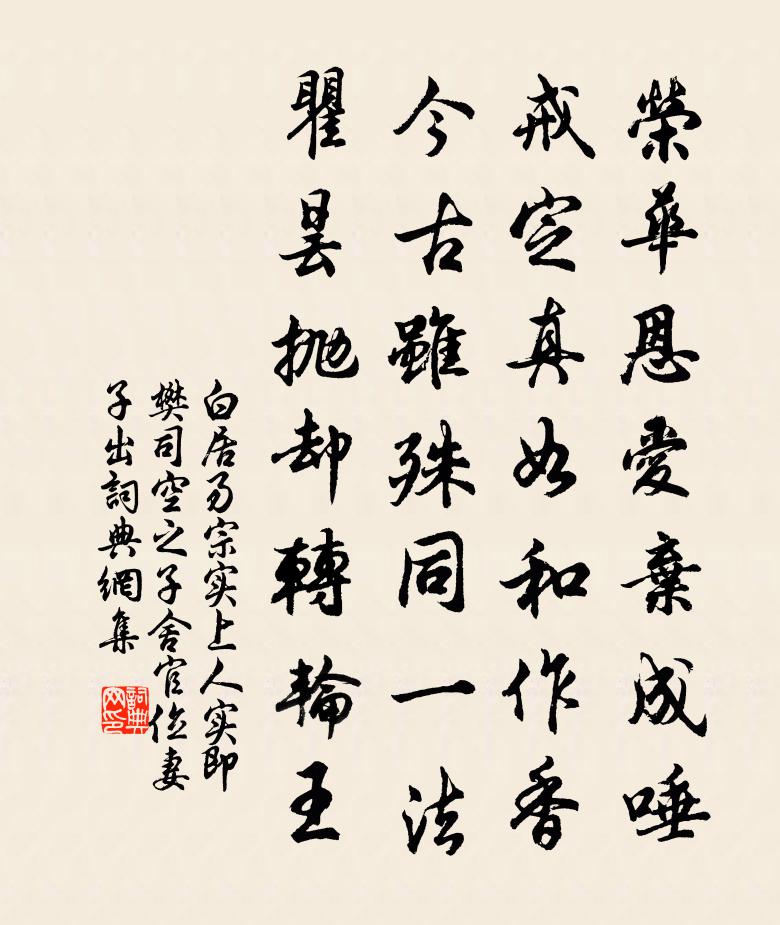 榮華恩愛棄成唾
戒定真如和作香
今古雖殊同一法
瞿曇拋却轉輪王
白居易宗实上人实即
樊司空之子舍官位妻
子出詞典網集
詞典
网印